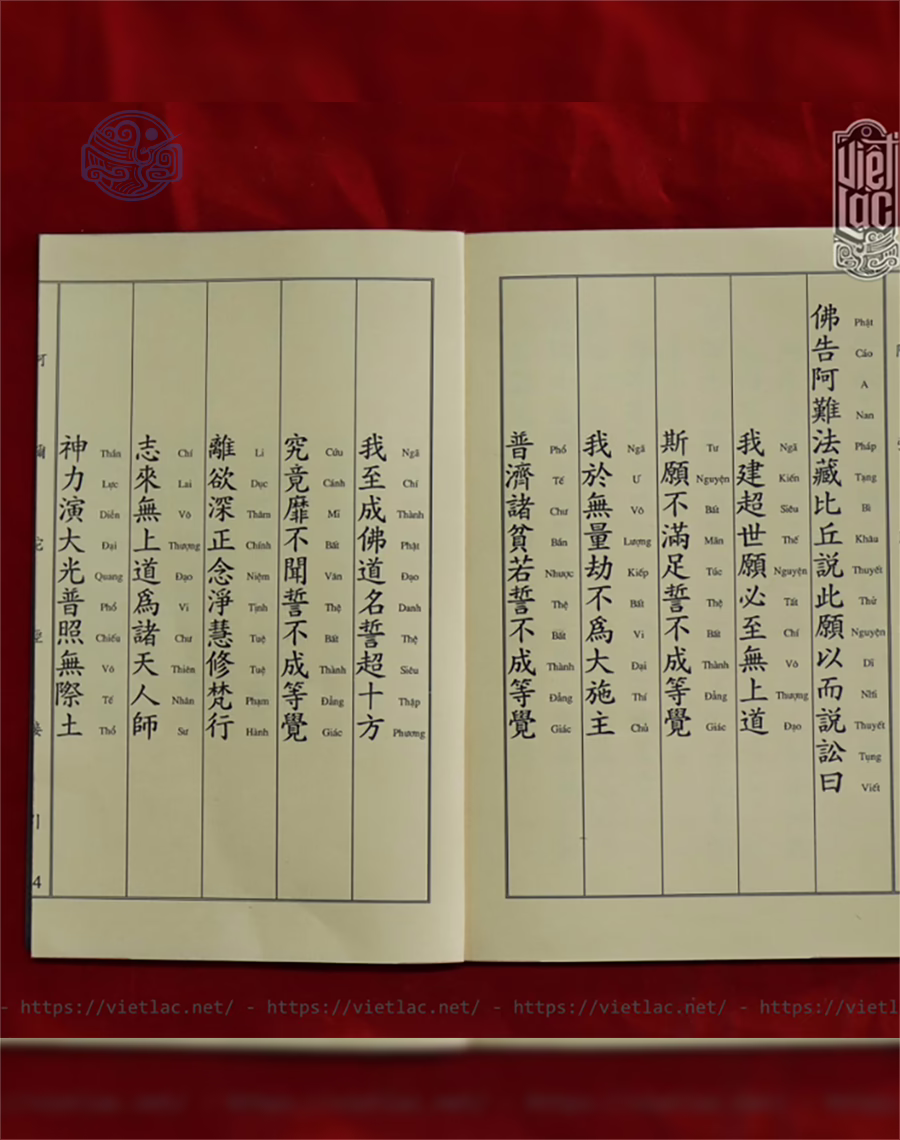 Việt Lạc
佛告阿難法藏比丘説此願以而説訟曰
Phật Cáo A Nan Pháp Tạng Bỉ Khâu Thuyết Thử Nguyện Dĩ Nhi Thuyết Tụng Viết
我建超世願必至無上道
Ngã Kiến Siêu Thế Nguyện Tất Chí Vô Thượng Đạo
斯願不滿足誓不成等覺
Tư Nguyện Bất Mãn Túc Thệ Bất Thành Đẳng Giác
我於無量劫不爲大施主
Ngã Ư Vô Lượng Kiếp Bất Vi Đại Thí Chủ
普濟諸貧若誓不成等覺
Phổ Tế Chư Bần Nhược Thệ Bất Thành Đẳng Giác
我至成佛道名誓超十方
Ngã Chí Thành Phật Đạo Danh Thệ Siêu Thập Phương
究竟靡不聞誓不成等覺
Cứu Cánh Mĩ Bất Văn Thệ Bất Thành Đẳng Giác
離欲深正念淨慧修梵行
Li Dục Thâm Chính Niệm Tịnh Tuệ Tuệ Phạm Hành
志來無上道爲諸天人師
Chí Lai Vô Thượng Đạo Vi Chư Thiên Nhân Sư
神力演大光普照無際土
Thần Lực Diễn Đại Quang Phổ Chiếu Vô Tế Thổ
4
- https://vietlac.net/ - https://vietlac.net/ - https://vietlac.net/ - https://vietl